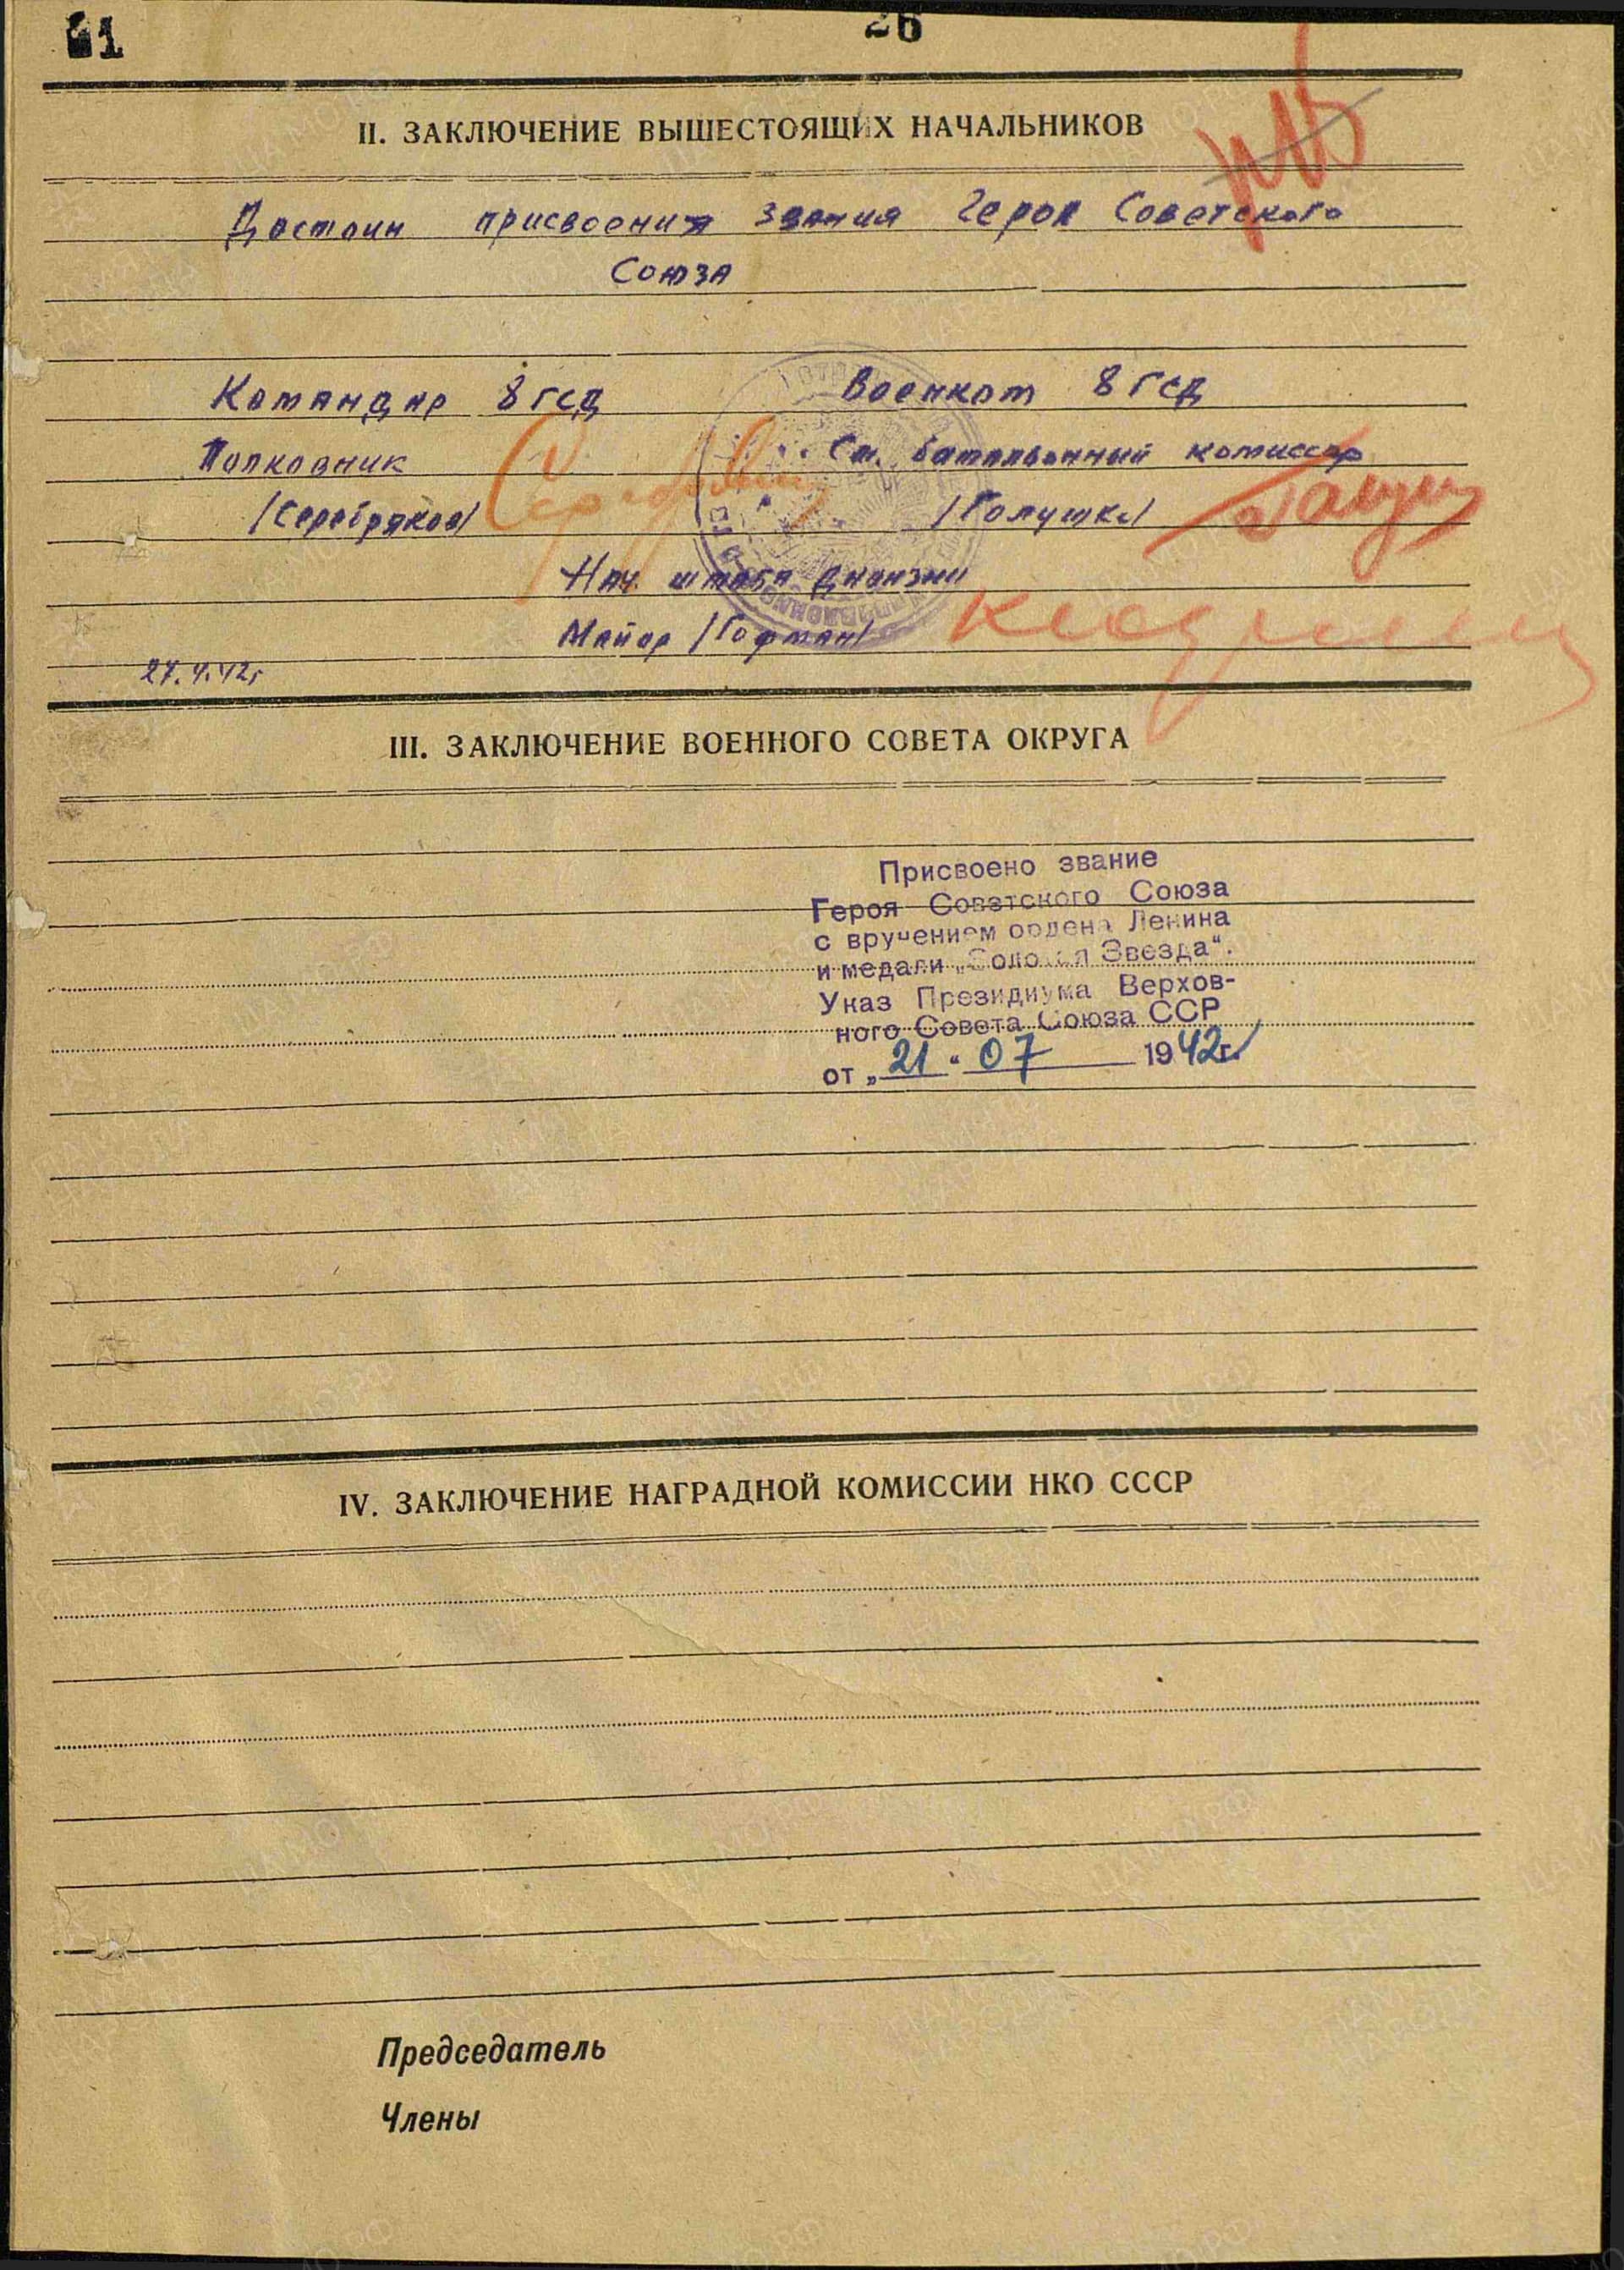 1
26
II. ЗАКЛЮЧЕНИЕ ВЫШЕСТОЯЩИХ НАЧАЛЬНИКОВ
Достоин присвоения звания Героя Советского
Союза
Командир 8 гсд
Военком 8 гсд
Полковник
Ст. батальонный комиссар
/Серебряков/
/Галушко/
Нач. штаба дивизии
Майор /Гофман/
27.4.42г
III. ЗАКЛЮЧЕНИЕ ВОЕННОГО СОВЕТА ОКРУГА
Присвоено звание
Героя Советского Союза
с вручением ордена Ленина
и медали „Золотая Звезда“.
Указ Президиума Верхов-
ного Совета Союза ССР
от „21“ 07 1942г.
IV. ЗАКЛЮЧЕНИЕ НАГРАДНОЙ КОМИССИИ НКО СССР
Председатель
Члены